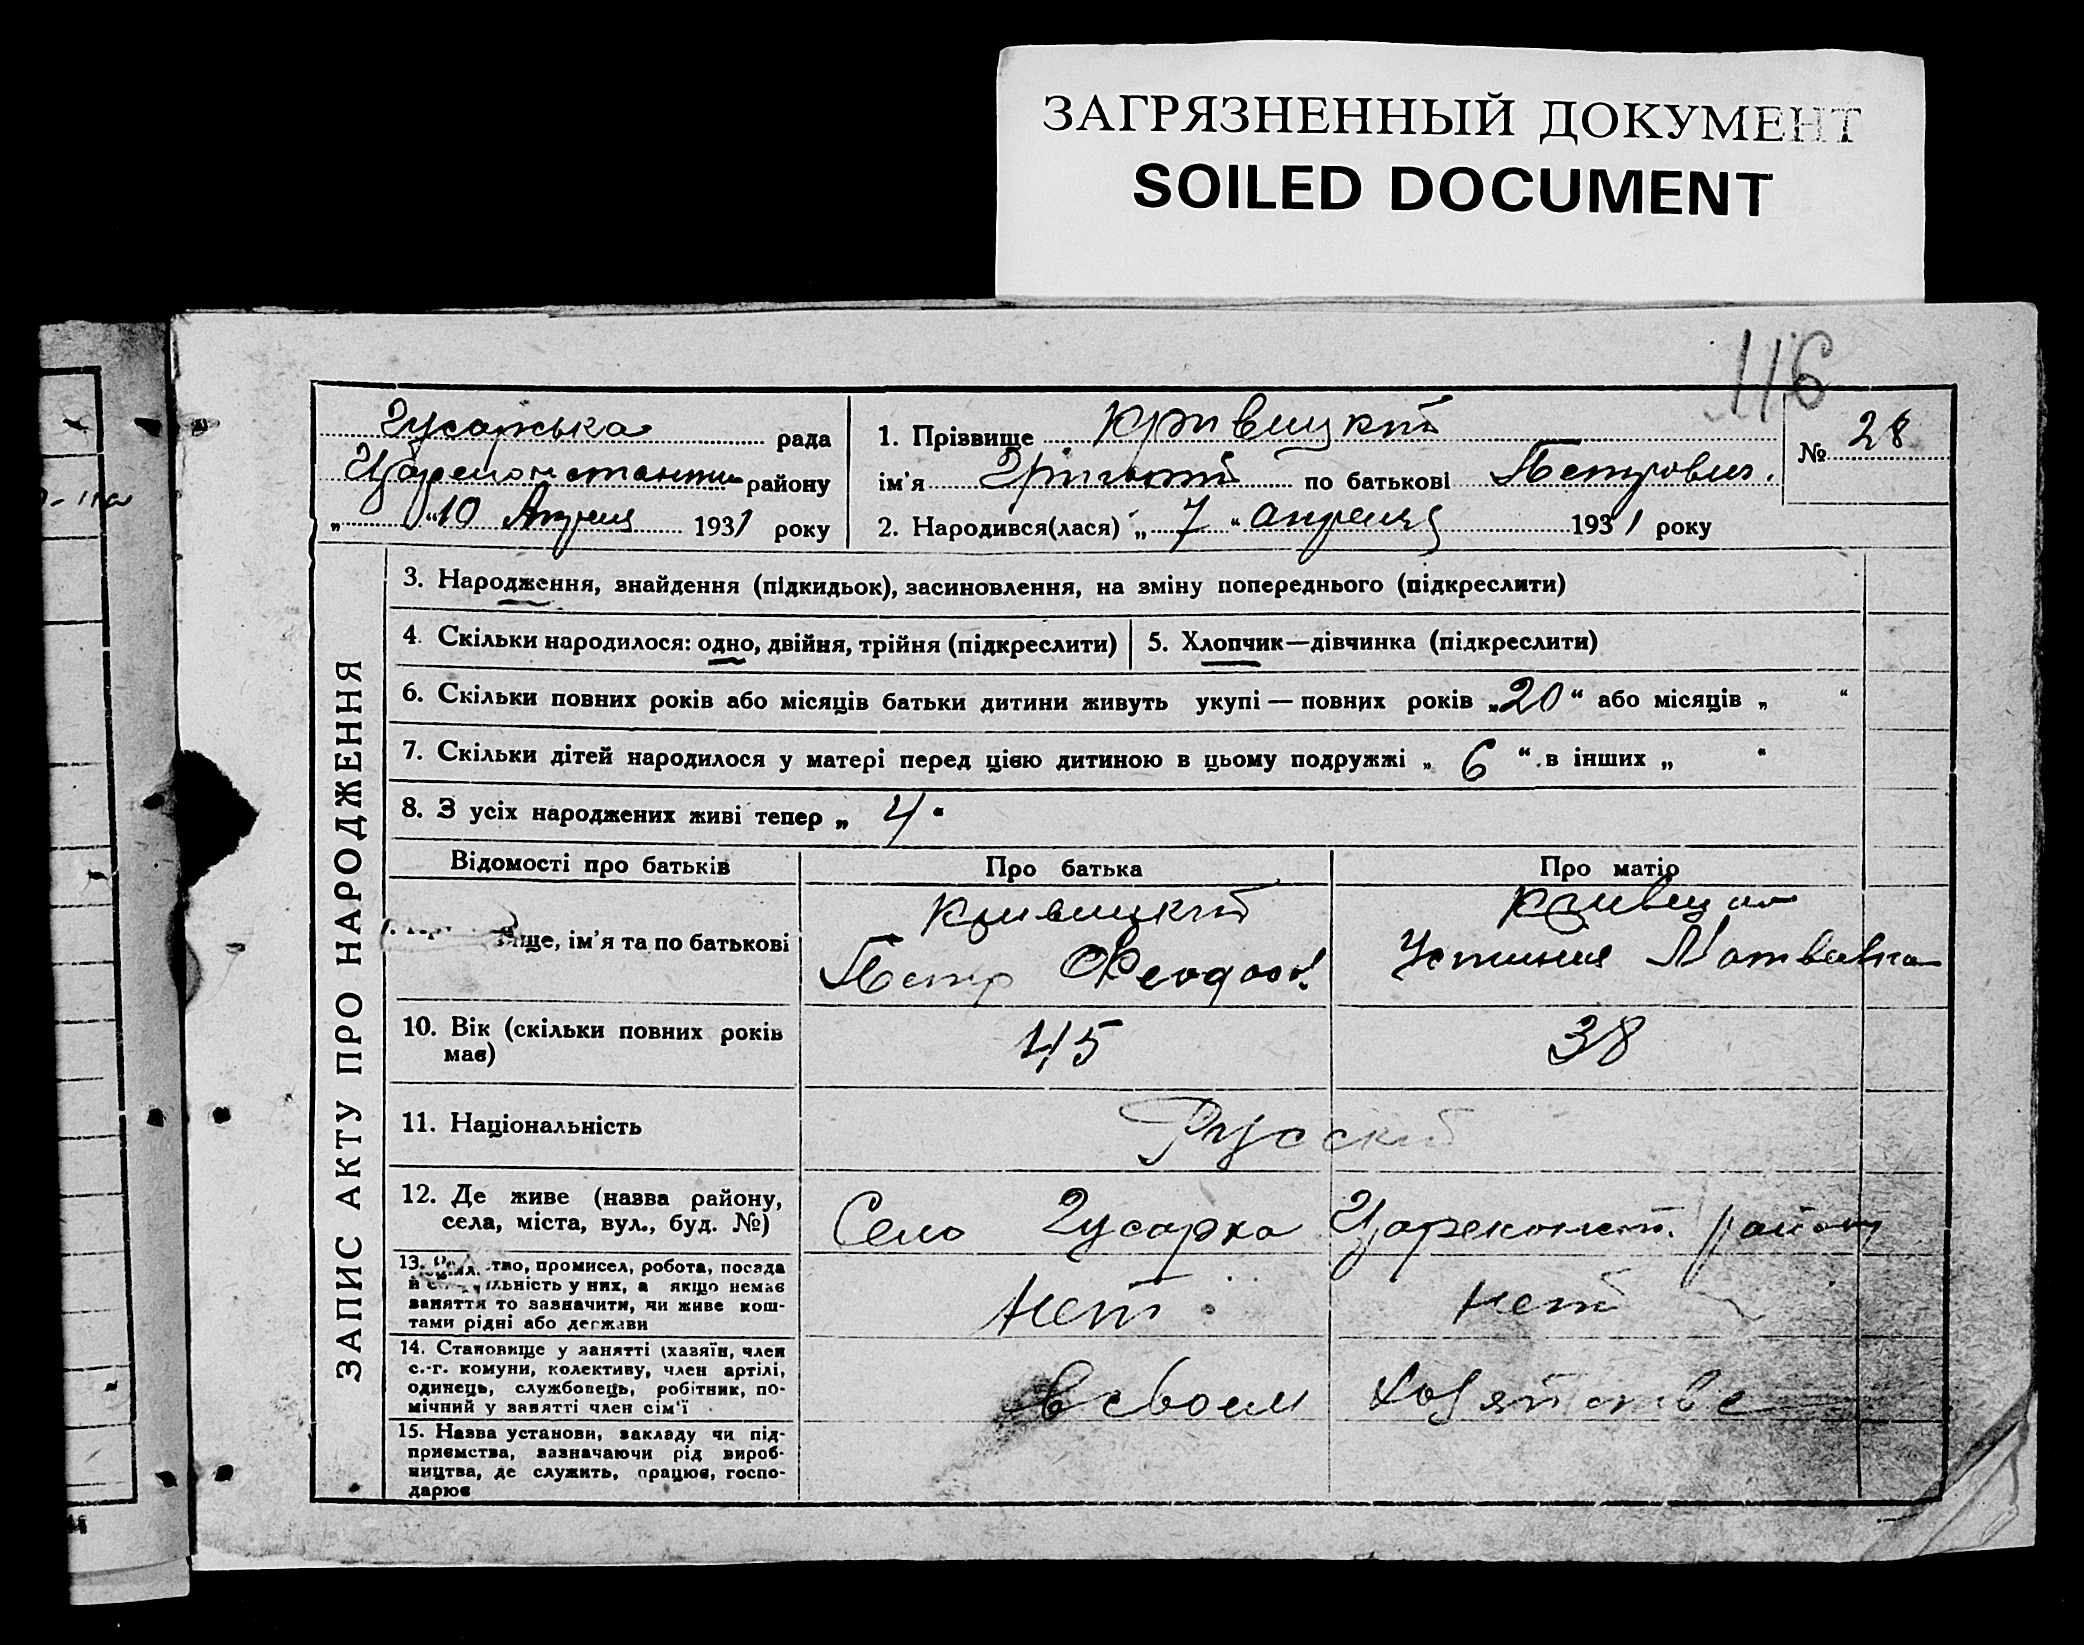 ЗАГРЯЗНЕННЫЙ ДОКУМЕНТ
SOILED DOCUMENT
116
Гусарська рада
Цареконстантин району
„ “10 Апреля 1931 року
1. Прізвище Кривицкий
ім'я Григорий по батькові Петрович.
2. Народився(лася) „ 7 “ апреля 1931 року
№ 28
ЗАПИС АКТУ ПРО НАРОДЖЕННЯ
3. Народження, знайдення (підкидьок), засиновлення, на зміну попереднього (підкреслити)
4. Скільки народилося: одно, двійня, трійня (підкреслити)
5. Хлопчик—дівчинка (підкреслити)
6. Скільки повних років або місяців батьки дитини живуть укупі — повних років „20“ або місяців „ “
7. Скільки дітей народилося у матері перед цією дитиною в цьому подружжі „ 6 “ в інших „ “
8. З усіх народжених живі тепер „ 4 “
Відомості про батьків Про батька Про матір
ще, ім'я та по батькові
Кривицкий
Петр Феодос.
Кривицкая
Устиния Матвевна
10. Вік (скільки повних років
має)
45 38
11. Національність
Русский
12. Де живе (назва району,
села, міста, вул., буд. №)
Село Гусарка Цареконст. району
13. тво, промисел, робота, посада
й льність у них, а якщо немає
заняття то зазначити, чи живе кош-
тами рідні або держави
Нет Нет
14. Становище у занятті (хазяїн, член
с.-г. комуни, колективу, член артілі,
одинець, службовець, робітник, по-
мічний у занятті член сім'ї
в своем хозяйстве
15. Назва установи, закладу чи під-
приємства, зазначаючи рід вироб-
ництва, де служить, працює, госпо-
дарює